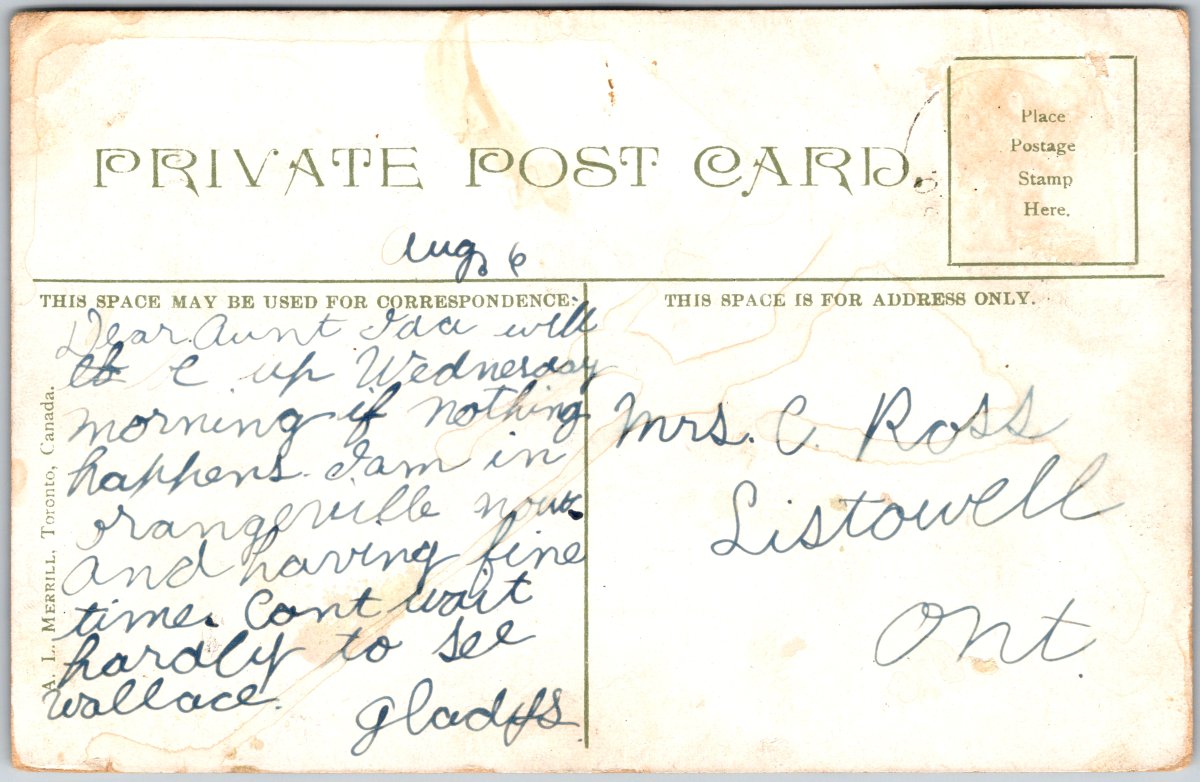 PRIVATE POST CARD.
Place
Postage
Stamp
Here.
Aug. 6
THIS SPACE MAY BE USED FOR CORRESPONDENCE.
THIS SPACE IS FOR ADDRESS ONLY.
Dear Aunt Ida will
C up Wednesday
morning if nothing
happens. I am in
orangeville now.
and having fine
time. Cant wait
hardly to see
wallace.
Gladys
Mrs. C. Ross
Listowell
Ont.
A. L. MERRILL, Toronto, Canada.